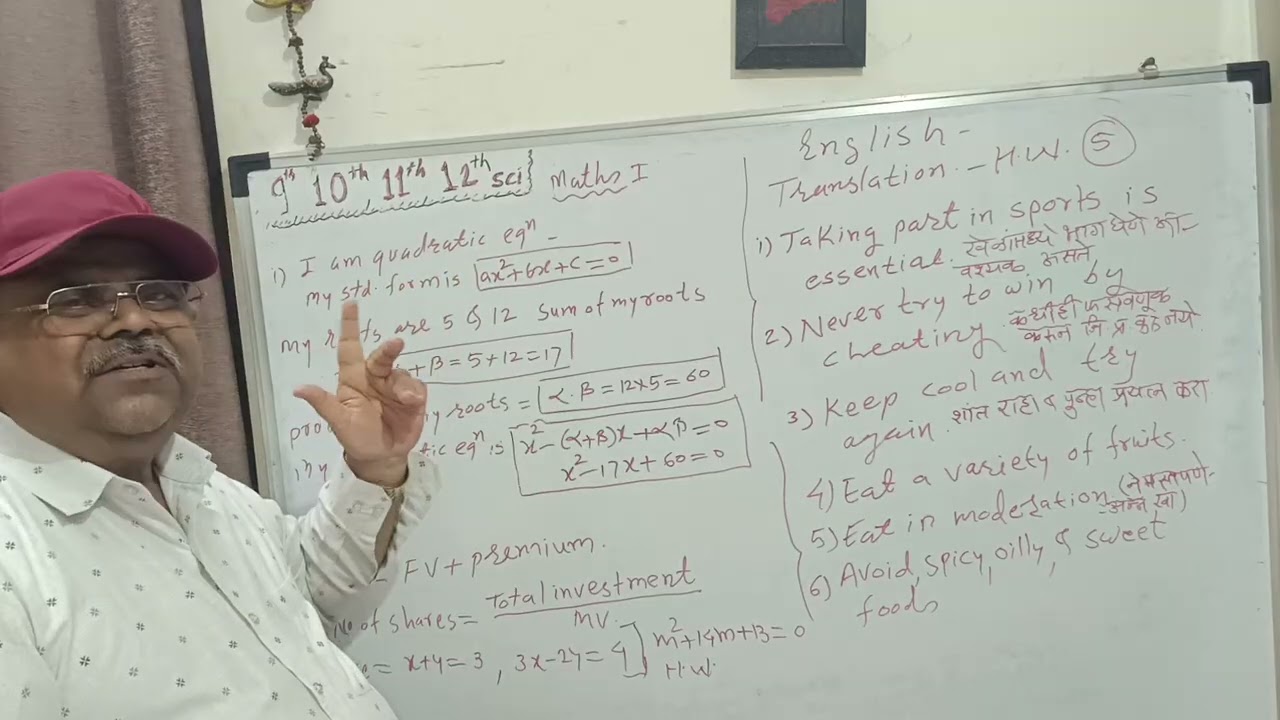 9th 10th 11th 12th sci} Maths I
i) I am quadratic eqn -
my std. form is ax²+bx+c=0
my roots are 5 & 12 sum of my roots
+ β = 5+12=17
my roots = α.β = 12×5=60
eqn is x²-(α+β)x+αβ=0
x²-17x+60=0
FV + premium.
No of shares = Total investment
MV.
= x+y=3 , 3x-2y=4] m²+14m+13=0
H.W.
English -
Translation. - H.W. 5
1) Taking part in sports is
essential. खेळांमध्ये भाग घेणे आ-
वश्यक असते
2) Never try to win by
cheating. कधीही फसवणूक
करून जिं प्र करू नये
3) Keep cool and try
again. शांत राहा व पुन्हा प्रयत्न करा
4) Eat a variety of fruits.
5) Eat in moderation. (नेमस्तपणे-
अन्न खा)
6) Avoid, spicy, oilly, & sweet
foods